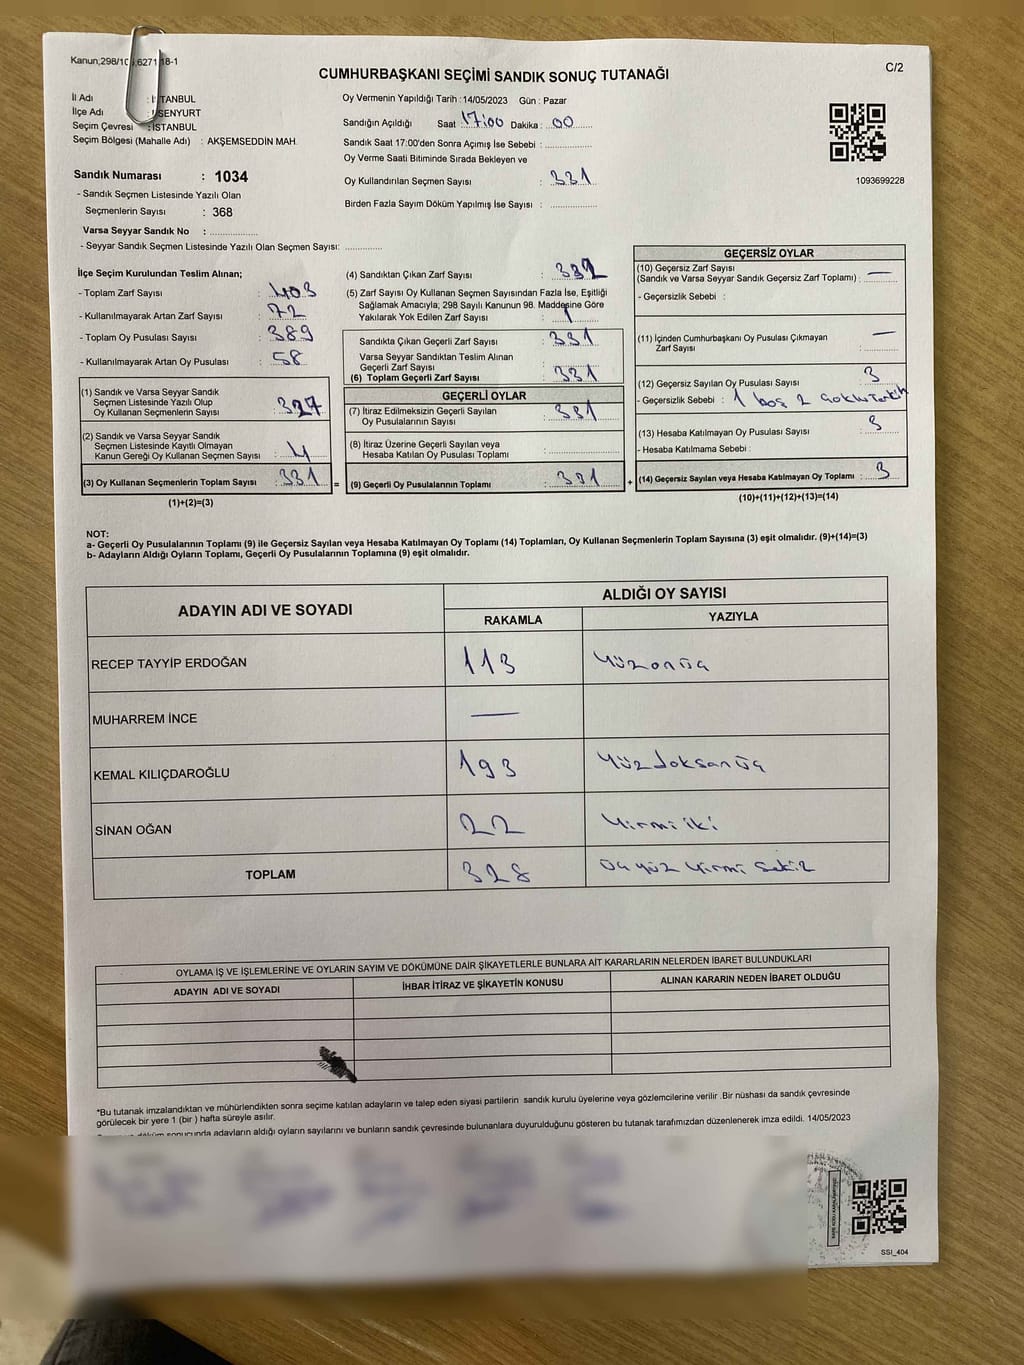 Kanun;298/10 ;6271 18-1
C/2
CUMHURBAŞKANI SEÇİMİ SANDIK SONUÇ TUTANAĞI
İl Adı : İSTANBUL
İlçe Adı : SENYURT
Seçim Çevresi : İSTANBUL
Seçim Bölgesi (Mahalle Adı) : AKŞEMSEDDİN MAH.
Sandık Numarası : 1034
- Sandık Seçmen Listesinde Yazılı Olan
Seçmenlerin Sayısı : 368
Varsa Seyyar Sandık No :
- Seyyar Sandık Seçmen Listesinde Yazılı Olan Seçmen Sayısı:
Oy Vermenin Yapıldığı Tarih : 14/05/2023 Gün : Pazar
Sandığın Açıldığı Saat 17:00 Dakika : 00
Sandık Saat 17:00'den Sonra Açımış İse Sebebi :
Oy Verme Saati Bitiminde Sırada Bekleyen ve
Oy Kullandırılan Seçmen Sayısı : 331
Birden Fazla Sayım Döküm Yapılmış İse Sayısı :
1093699228
İlçe Seçim Kurulundan Teslim Alınan;
- Toplam Zarf Sayısı : 403
- Kullanılmayarak Artan Zarf Sayısı : 72
- Toplam Oy Pusulası Sayısı : 389
- Kullanılmayarak Artan Oy Pusulası : 58
(1) Sandık ve Varsa Seyyar Sandık
Seçmen Listesinde Yazılı Olup
Oy Kullanan Seçmenlerin Sayısı : 327
(2) Sandık ve Varsa Seyyar Sandık
Seçmen Listesinde Kayıtlı Olmayan
Kanun Gereği Oy Kullanan Seçmen Sayısı : 4
(3) Oy Kullanan Seçmenlerin Toplam Sayısı : 331 =
(1)+(2)=(3)
(4) Sandıktan Çıkan Zarf Sayısı : 332
(5) Zarf Sayısı Oy Kullanan Seçmen Sayısından Fazla İse, Eşitliği
Sağlamak Amacıyla; 298 Sayılı Kanunun 98. Maddesine Göre
Yakılarak Yok Edilen Zarf Sayısı : 1
Sandıkta Çıkan Geçerli Zarf Sayısı : 331
Varsa Seyyar Sandıktan Teslim Alınan
Geçerli Zarf Sayısı :
(6) Toplam Geçerli Zarf Sayısı : 331
GEÇERLİ OYLAR
(7) İtiraz Edilmeksizin Geçerli Sayılan
Oy Pusulalarının Sayısı : 331
(8) İtiraz Üzerine Geçerli Sayılan veya
Hesaba Katılan Oy Pusulası Toplamı :
(9) Geçerli Oy Pusulalarının Toplamı : 331 +
GEÇERSİZ OYLAR
(10) Geçersiz Zarf Sayısı
(Sandık ve Varsa Seyyar Sandık Geçersiz Zarf Toplamı) : —
- Geçersizlik Sebebi :
(11) İçinden Cumhurbaşkanı Oy Pusulası Çıkmayan
Zarf Sayısı : —
(12) Geçersiz Sayılan Oy Pusulası Sayısı : 3
- Geçersizlik Sebebi : 1 boş 2 çoklu tercih
(13) Hesaba Katılmayan Oy Pusulası Sayısı : 3
- Hesaba Katılmama Sebebi :
(14) Geçersiz Sayılan veya Hesaba Katılmayan Oy Toplamı : 3
(10)+(11)+(12)+(13)=(14)
NOT:
a- Geçerli Oy Pusulalarının Toplamı (9) ile Geçersiz Sayılan veya Hesaba Katılmayan Oy Toplamı (14) Toplamları, Oy Kullanan Seçmenlerin Toplam Sayısına (3) eşit olmalıdır. (9)+(14)=(3)
b- Adayların Aldığı Oyların Toplamı, Geçerli Oy Pusulalarının Toplamına (9) eşit olmalıdır.
ADAYIN ADI VE SOYADI ALDIĞI OY SAYISI
RAKAMLA YAZIYLA
RECEP TAYYİP ERDOĞAN 113 Yüzonüç
MUHARREM İNCE —
KEMAL KILIÇDAROĞLU 193 Yüzdoksanüç
SİNAN OĞAN 22 Yirmi iki
TOPLAM 328 Üçyüz Yirmi Sekiz
OYLAMA İŞ VE İŞLEMLERİNE VE OYLARIN SAYIM VE DÖKÜMÜNE DAİR ŞİKAYETLERLE BUNLARA AİT KARARLARIN NELERDEN İBARET BULUNDUKLARI
ADAYIN ADI VE SOYADI İHBAR İTİRAZ VE ŞİKAYETİN KONUSU ALINAN KARARIN NEDEN İBARET OLDUĞU
*Bu tutanak imzalandıktan ve mühürlendikten sonra seçime katılan adayların ve talep eden siyasi partilerin sandık kurulu üyelerine veya gözlemcilerine verilir .Bir nüshası da sandık çevresinde
görülecek bir yere 1 (bir ) hafta süreyle asılır.
döküm sonucunda adayların aldığı oyların sayılarını ve bunların sandık çevresinde bulunanlara duyurulduğunu gösteren bu tutanak tarafımızdan düzenlenerek imza edildi. 14/05/2023
SSI_404